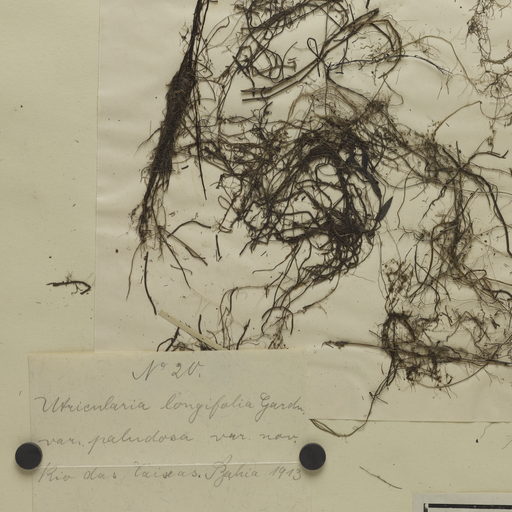 No 20.
Utricularia longifolia Gardn.
var. paludosa var. nov.
Rio das Caixas. Bahia 1913